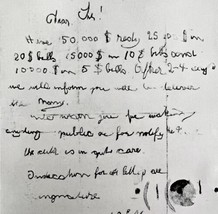 Dear Sir!
Have 50,000 $ redy 25 000 $ in
20 $ bills 15000 $ in 10 $ bills and
10000 $ in 5 $ bills After 2-4 days
we will inform you were to deliver
the Mony.
We warn you for making
anyding public or for notify the
the child is in gut care.
Indication for all letters are
singnature